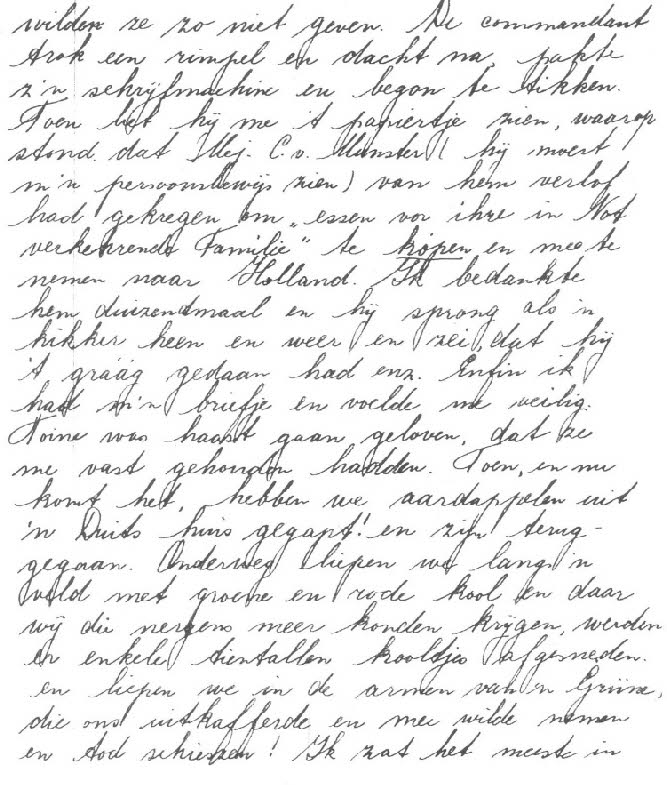 wilden ze zo niet geven. De commandant
trok een rimpel en dacht na, pakte
z'n schrijfmachine en begon te tikken.
Toen liet hij me 't papiertje zien, waarop
stond dat Mej. C. v. Munster ( hij moest
m'n persoonsbewijs zien) van hem verlof
had gekregen om „essen vor ihre in Not
verkehrende Familie" te kopen en mee te
nemen naar Holland. Ik bedankte
hem duizendmaal en hij sprong als 'n
kikker heen en weer en zei, dat hij
't gráág gedaan had enz. Enfin ik
had m'n briefje en voelde me veilig.
Toine was haast gaan geloven, dat ze
me vast gehouden hadden. Toen, en nu
komt het, hebben we aardappelen uit
'n Duits huis gegapt! en zijn terug-
gegaan. Onderweg liepen we langs 'n
veld met groene en rode kool en daar
wij die nergens meer konden krijgen, werden
er enkele tientallen kooltjes afgesneden.
en liepen we in de armen van 'n Grüne,
die ons uitkafferde en mee wilde nemen
en tod schieszen! Ik zat het meeste in